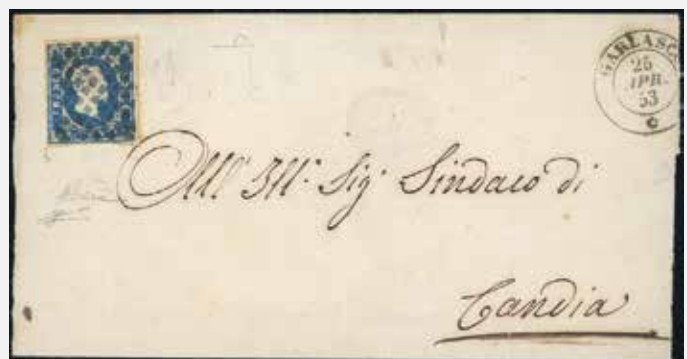 GARLASCO
25
APR.
53
All' Ill.º Sig.r Sindaco di
Candia